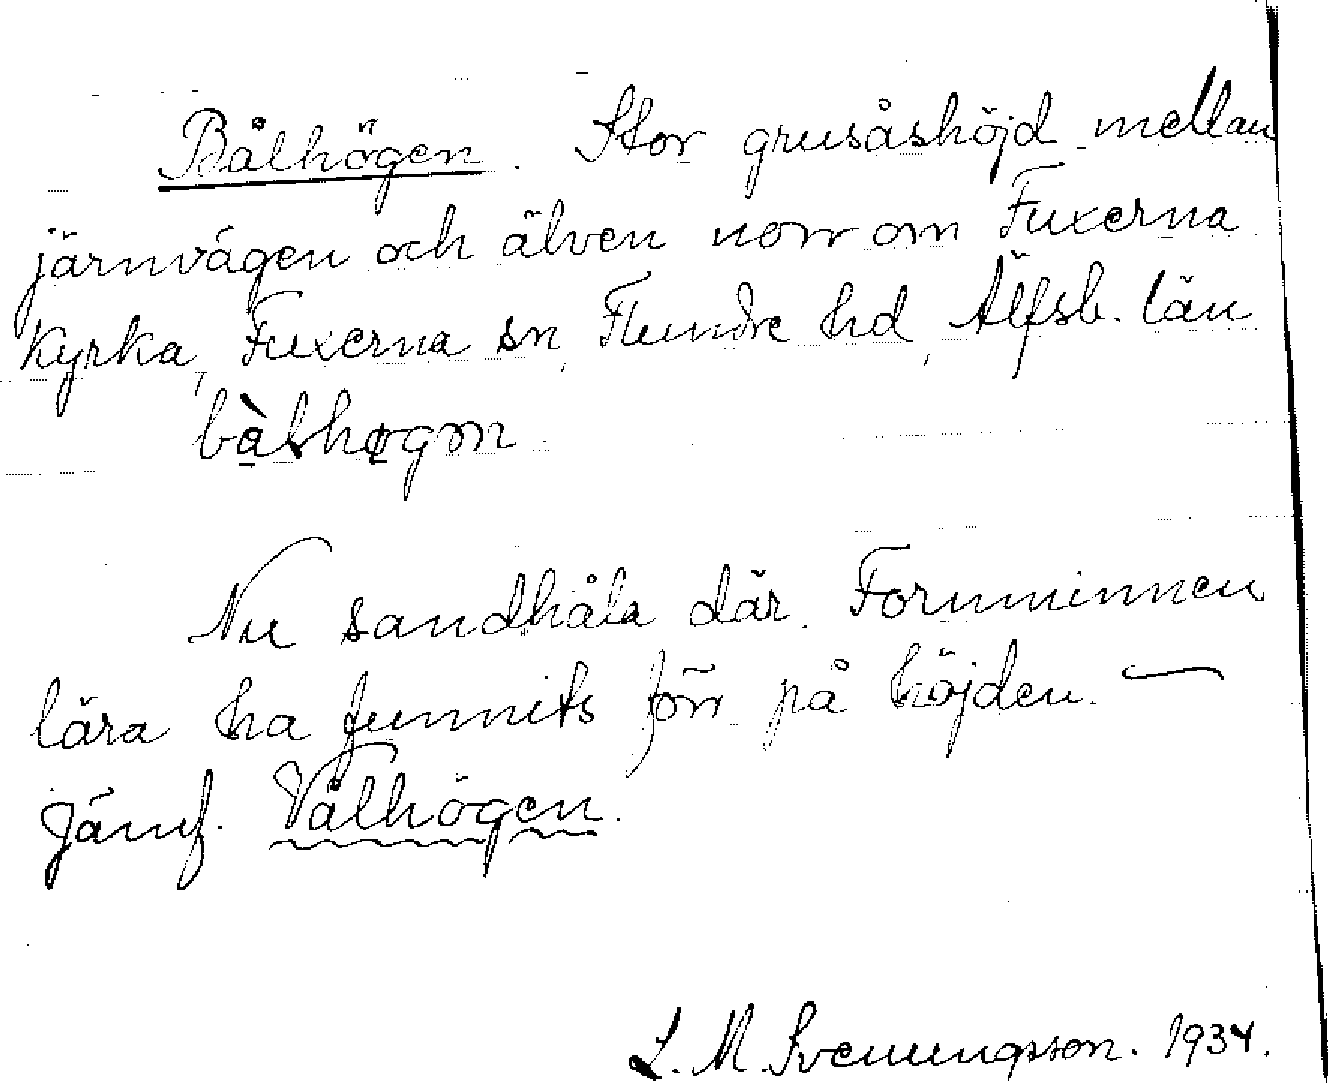 Bålhögen. Stor grusåshöjd mellan
järnvägen och älven norr om Fuxerna
kyrka, Fuxerna sn, Flundre hd, Älfsb. län
Nu sandhåla där. Fornminnen
lära ha funnits förr på höjden. —
Jämf. Vålhögen.
S. M. Svenungsson. 1934.